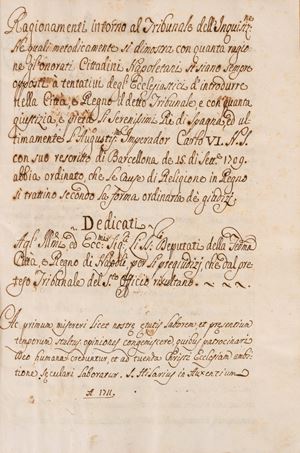 Ragionamenti intorno al Tribunale dell'Inquisiz.ne
Ne quali metodicamente si dimostra con quanta ragio
ne gl'onorati Cittadini Napoletani si siano sempre
opposti a tentativi degl'Ecclesiastici d'introdurre
nella Città, e Regno il detto Tribunale e con quanta
giustizia, e pietà li Serenissimi Re di Spagna, ed ul
timamente l'Augustiss.mo Imperador Carlo VI. N.S.
con suo rescritto di Barcellona de 15. di Sett.e 1709.
abbia ordinato che le Cause di Religione in Regno
si trattino secondo la forma ordinaria de giudizj
Dedicati
Agl'Illmi, ed Ecc.mi Sig.ri li SS.ri Deputati della Fedma
Città, e Regno di Napoli per li pregiudizj, che dal pre
teso Tribunale del S.to Officio risultano
Ac primum misereri licet nostre etatis laborem, et presentium
temporum stultas opiniones congemiscere, quibus patrocinari
Deo humana creduntur, et ad tuendam Christi Ecclesiam ambi
tione seculari laboratur. S. Hilarius in Auxentium
A. 1711.